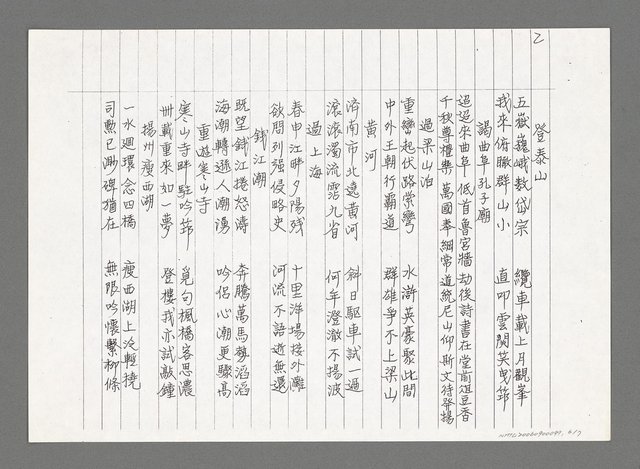 乙
登泰山
五嶽巍峨數岱宗　纜車載上月觀峯
我來俯瞰群山小　直叩雲關笑曳筇
謁曲阜孔子廟
迢迢來曲阜 低首魯宮牆 劫後詩書在 堂前俎豆香
千秋尊禮樂 萬國奉綱常 道統尼山仰 斯文待發揚
過梁山泊
重巒起伏路縈彎　水滸英豪聚此間
中外王朝行霸道　群雄爭不上梁山
黃河
濟南市北遶黃河　斜日驅車試一過
滾滾濁流霑九省　何年澄澈不揚波
過上海
春申江畔夕陽殘　十里洋場接外灘
欲問列強侵略史　河流不語逝無還
錢江潮
既望錢江捲怒濤　奔騰萬馬勢滔滔
海潮轉遜人潮湧　吟侶心潮更驟高
重遊寒山寺
寒山寺畔駐吟筇　覓句楓橋客思濃
卅載重來如一夢　登樓我亦試敲鐘
揚州瘦西湖
一水迴環念四橋　瘦西湖上泛輕橈
司勳已渺碑猶在　無限吟懷繫柳條